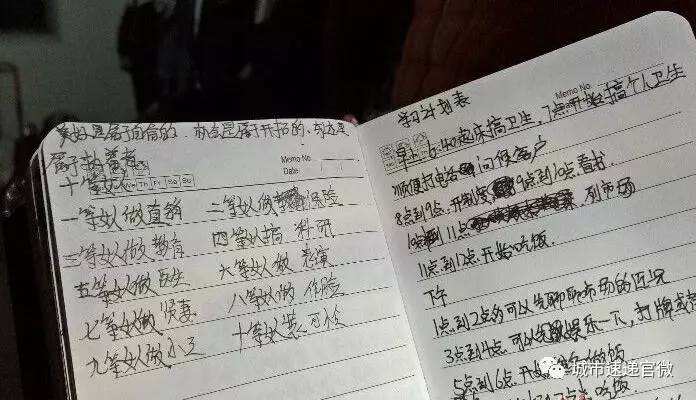 美好是属于自信的．机会是属于开拓的．
属于执着者
Memo No.
Date
Mo Tu We Th Fr Sa Su
十等女人
一等女人做直销 二等女人做保险
三等女人做教育 四等女人搞科研
五等女人做医生 六等女人做表演
七等女人做贤妻 八等女人做保险
九等女人做小三 十等女人装可怜
学习计划表
Memo No.
早上6:40起床搞卫生，7点开始搞个人卫生
顺便打电话问候客户
8点到9点．开制度 9点到10点．看书
10点到11点 列市场
11点到12点．开始吃饭
下午
1点到2点的可以先聊聊市场的近况
3点到4点．可以先娱乐一下，打牌或
5点到6点．开始 做饭
吃饭
城市速递官微